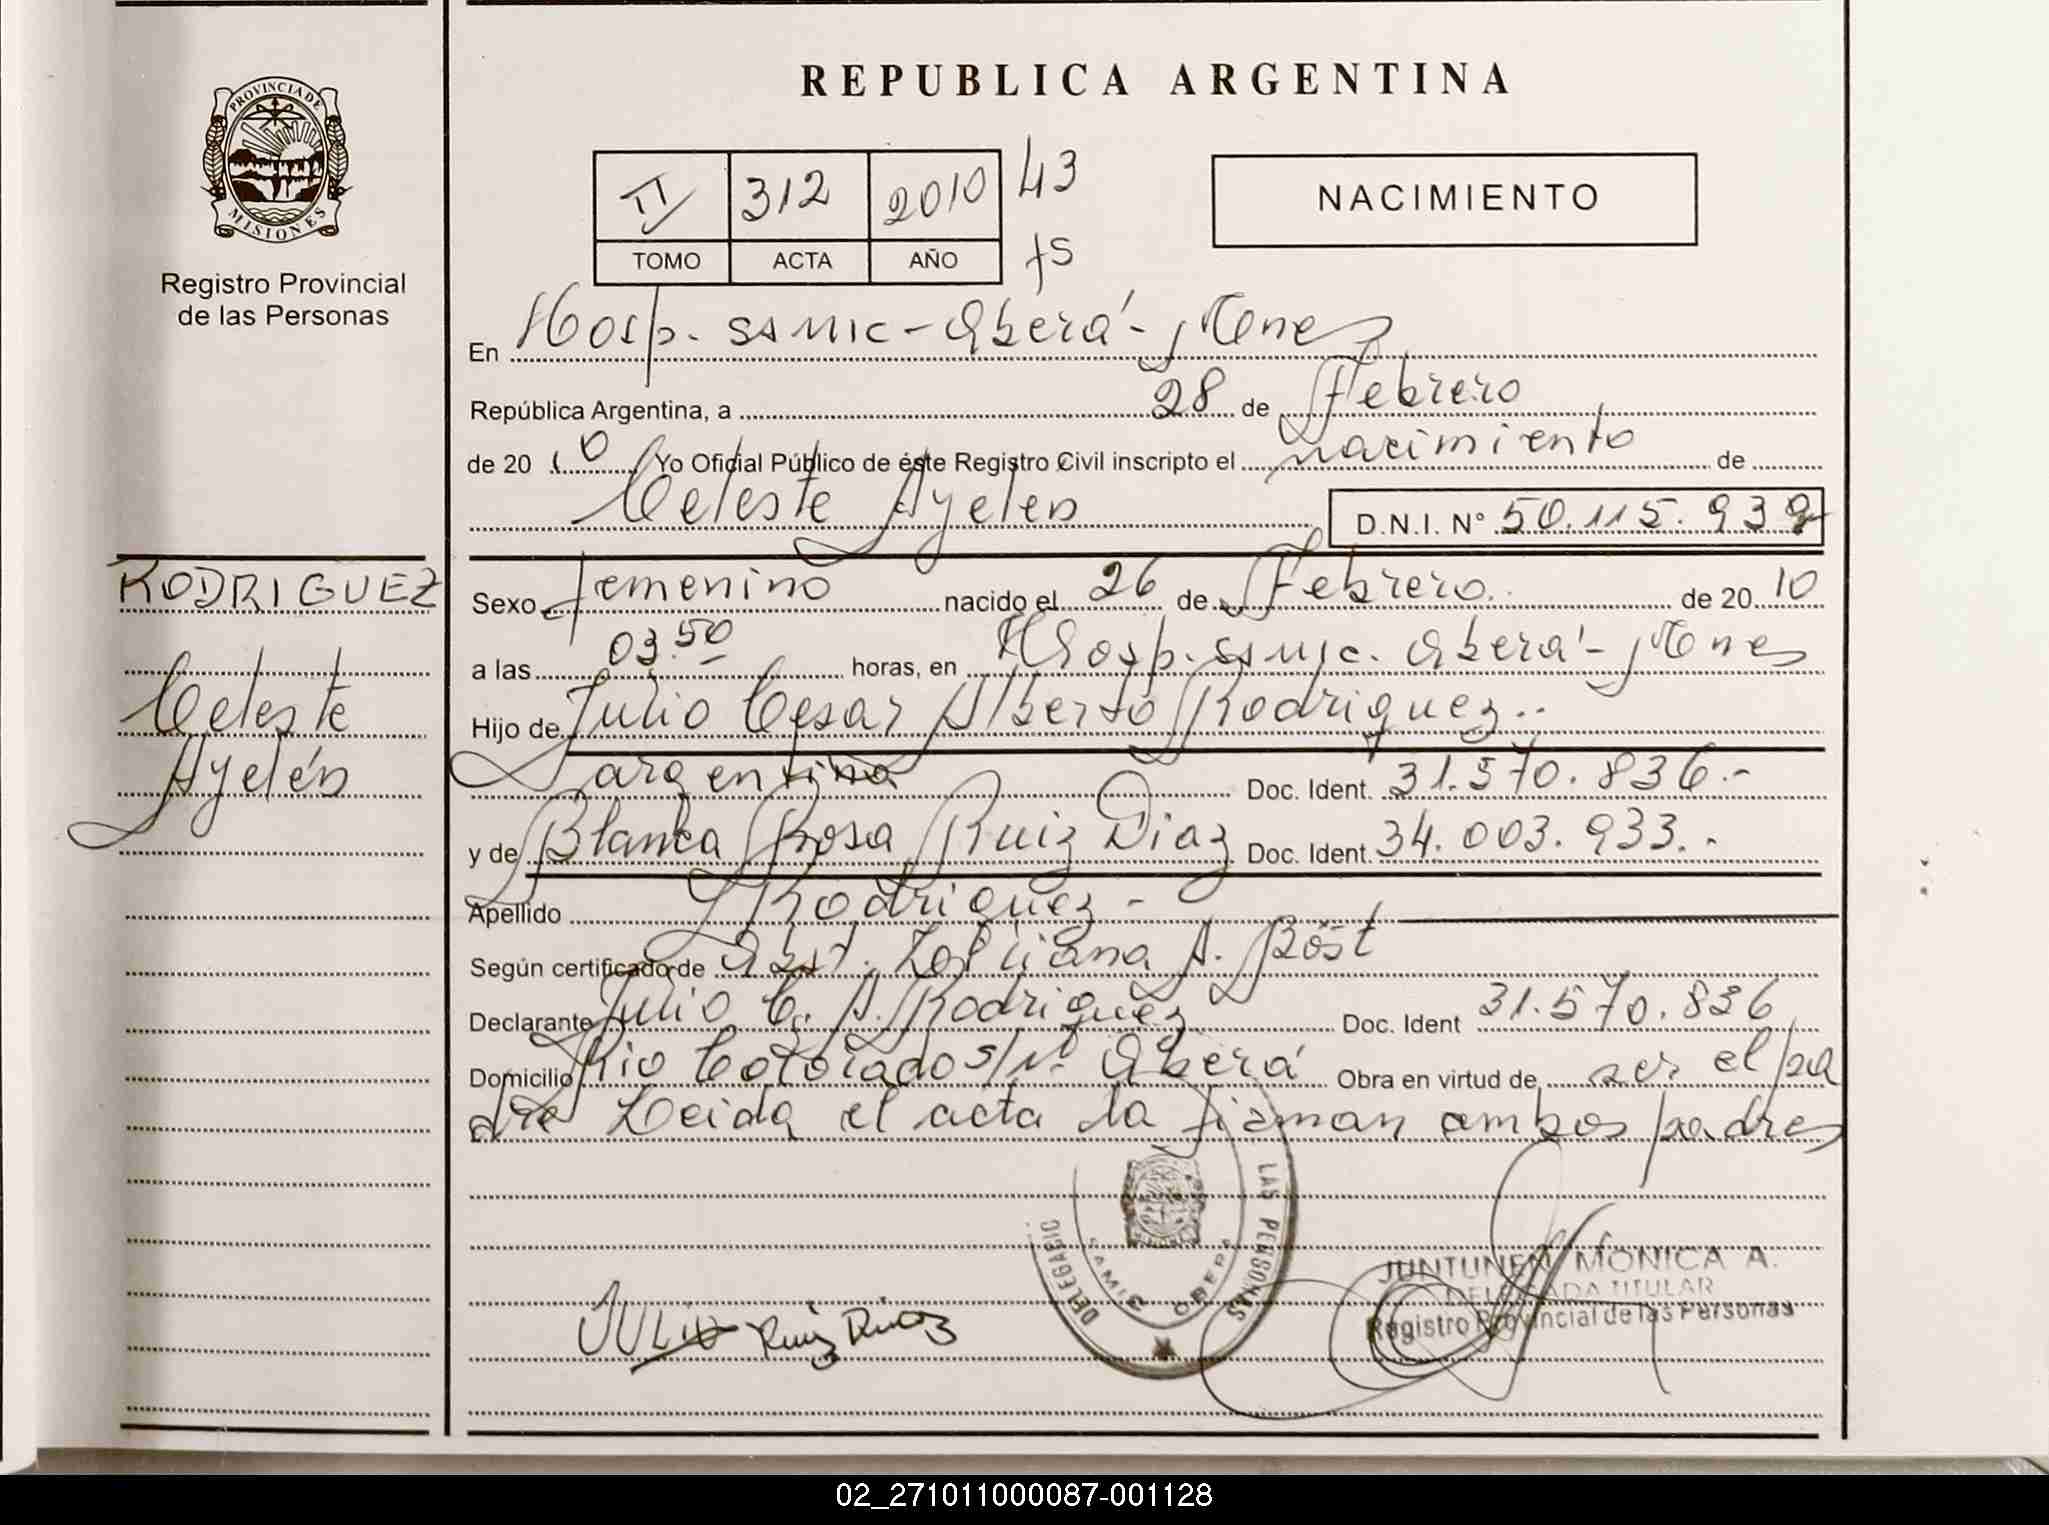 PROVINCIA DE
MISIONES
Registro Provincial
de las Personas
RODRIGUEZ
Celeste
Ayelén
REPUBLICA ARGENTINA
II 312 2010 43
TOMO ACTA AÑO fs
NACIMIENTO
En Hosp. SAMIC - Oberá - Mnes
República Argentina, a 28 de Febrero
de 2010 Yo Oficial Público de éste Registro Civil inscripto el nacimiento de
Celeste Ayelen D.N.I. N° 50.115.939
Sexo femenino nacido el 26 de Febrero de 2010
a las 03.50 horas, en Hosp. SAMIC. Oberá - Mnes
Hijo de Julio Cesar Alberto Rodriguez..
argentina Doc. Ident. 31.570.836.-
y de Blanca Rosa Ruiz Diaz Doc. Ident. 34.003.933.-
Apellido Rodriguez -
Según certificado de Obst. A. Böst
Declarante Julio C. A. Rodriguez Doc. Ident 31.570.836
Domicilio Rio Colorado s/n. Oberá Obra en virtud de ser el pa
dre Leida el acta la firman ambos padres
DELEGACIO LAS PERSONAS
SAMIC OBERA
JULIO Ruiz Diaz
JUNTUNEN MONICA A.
DELEGADA TITULAR
Registro Provincial de las Personas
02_271011000087-001128